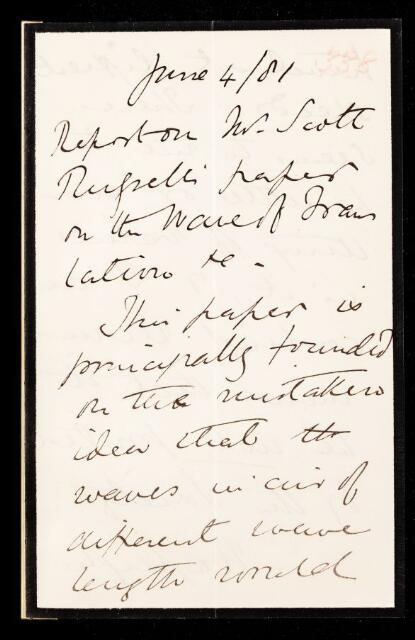 June 4/81
Report on Mr. Scott
Russell's paper
on the Wave of Trans
lation &c -
This paper is
principally founded
on the mistaken
idea that the
waves in air of
different wave
length would